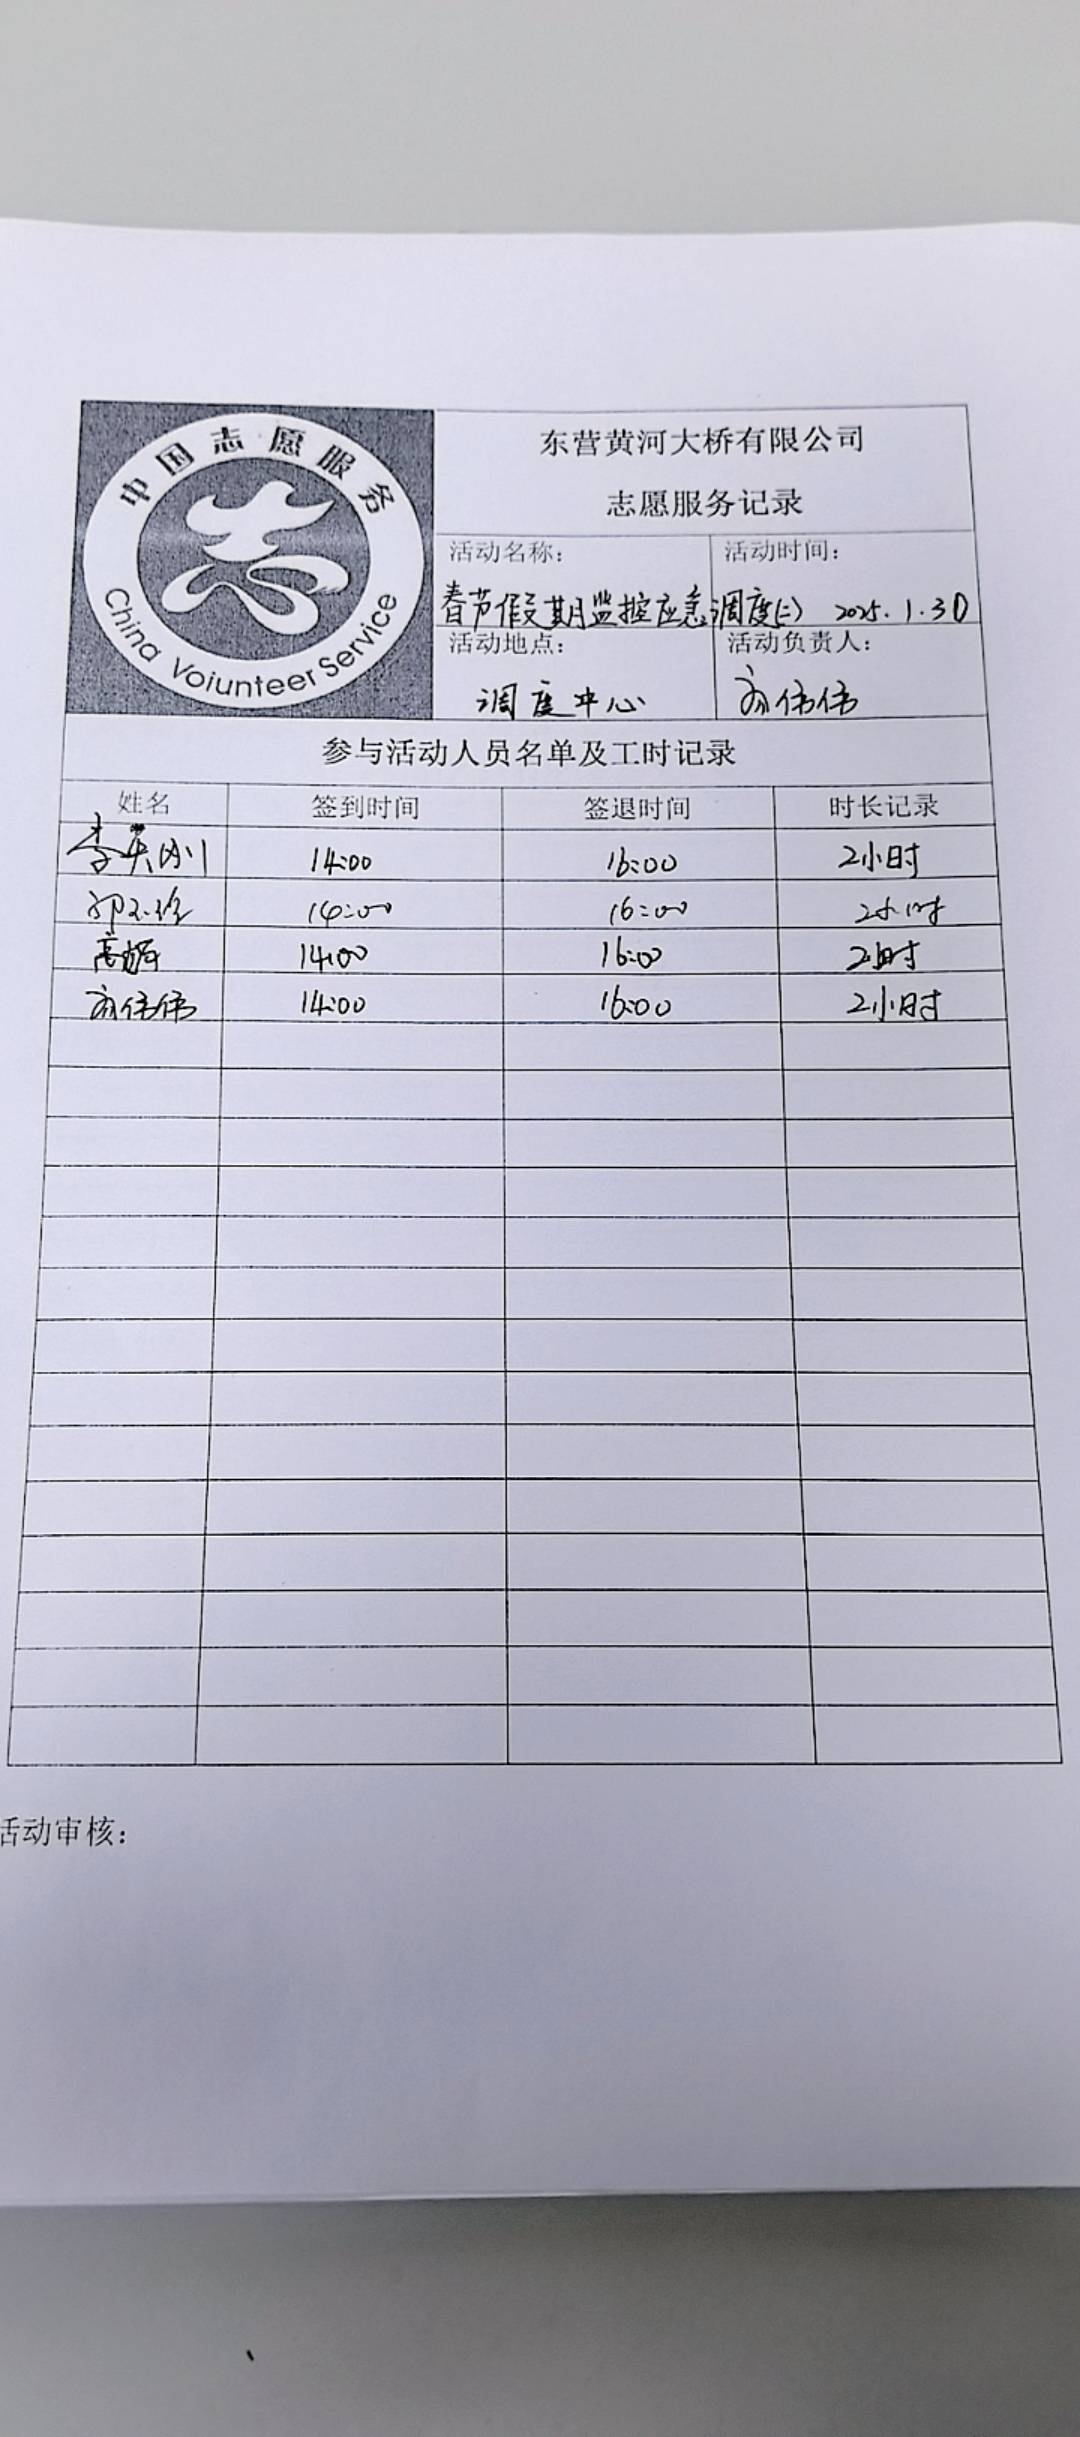 中国志愿服务
China Voiunteer Service
东营黄河大桥有限公司
志愿服务记录
活动名称: 活动时间:
春节假期监控应急调度(二) 2025.1.30
活动地点: 活动负责人:
调度中心 伟伟
参与活动人员名单及工时记录
姓名 签到时间 签退时间 时长记录
李英刚 14:00 16:00 2小时
14:00 16:00 2小时
高辉 14:00 16:00 2小时
伟伟 14:00 16:00 2小时
活动审核: